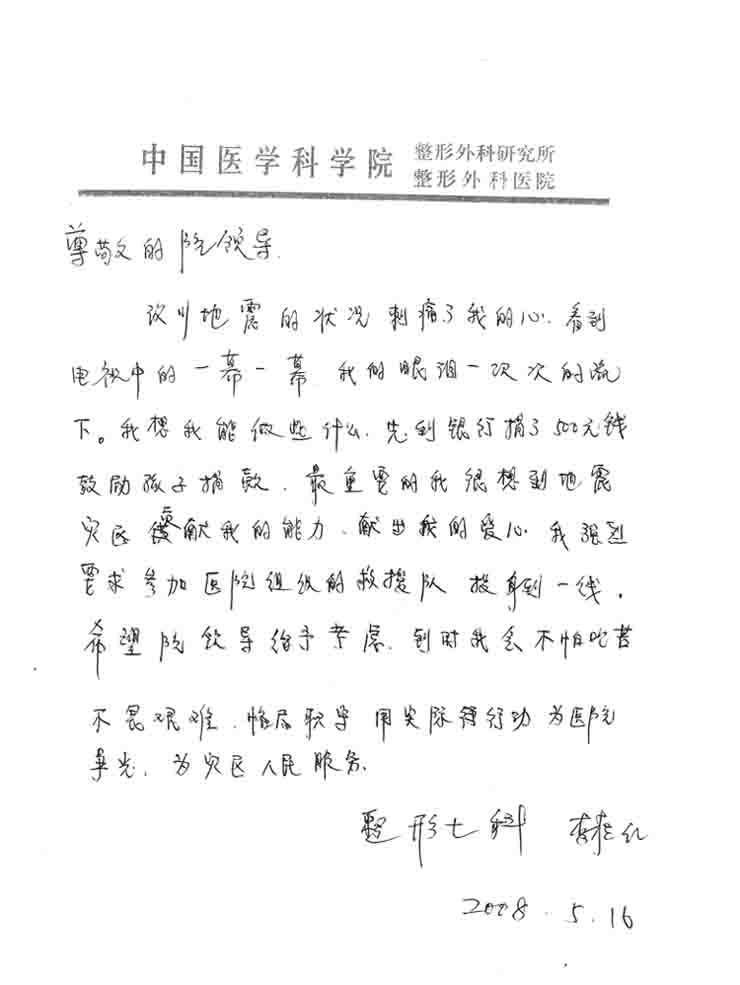 中国医学科学院 整形外科研究所
整形外科医院
尊敬的院领导.
汶川地震的状况刺痛了我的心.看到
电视中的一幕一幕,我的眼泪一次次的流
下。我想我能做些什么.先到银行捐了500元钱
鼓励孩子捐款.最重要的我很想到地震
灾区贡献我的能力、献出我的爱心.我强烈
要求参加医院组织的救援队 投身到一线.
希望院领导给予考虑.到时我会不怕吃苦
不畏艰难.恪尽职守 用实际行动为医院
争光.为灾区人民服务.
整形七科
2008.5.16